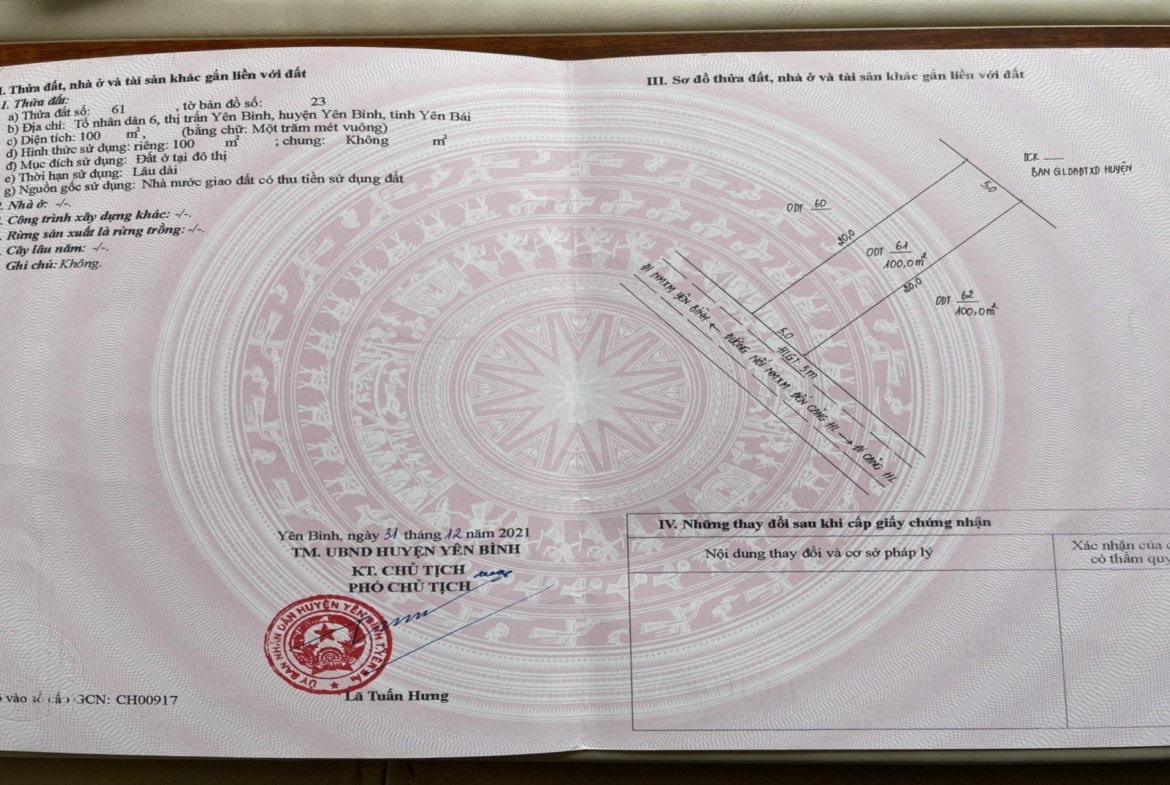 I. Thửa đất, nhà ở và tài sản khác gắn liền với đất
1. Thửa đất:
a) Thửa đất số: 61 , tờ bản đồ số: 23
b) Địa chỉ: Tổ nhân dân 6, thị trấn Yên Bình, huyện Yên Bình, tỉnh Yên Bái
c) Diện tích: 100 m², (bằng chữ: Một trăm mét vuông)
d) Hình thức sử dụng: riêng: 100 m² ; chung: Không m²
đ) Mục đích sử dụng: Đất ở tại đô thị
e) Thời hạn sử dụng: Lâu dài
g) Nguồn gốc sử dụng: Nhà nước giao đất có thu tiền sử dụng đất
. Nhà ở: -/-.
. Công trình xây dựng khác: -/-.
. Rừng sản xuất là rừng trồng: -/-.
. Cây lâu năm: -/-.
Ghi chú: Không.
Yên Bình, ngày 31 tháng 12 năm 2021
TM. UBND HUYỆN YÊN BÌNH
KT. CHỦ TỊCH
PHÓ CHỦ TỊCH
ỦY BAN NHÂN DÂN HUYỆN YÊN BÌNH T.YÊN BÁI
Lã Tuấn Hưng
vào sổ cấp GCN: CH00917
III. Sơ đồ thửa đất, nhà ở và tài sản khác gắn liền với đất
BAN QLDAĐTXD HUYỆN
5,0
ODT 60
20,0
ODT 61
100,0m²
20,0
ODT 62
100,0m²
5,0
HLGT: 5m
ĐI NMXM YÊN BÌNH ← ĐƯỜNG NỐI NMXM ĐẾN CẢNG HL → ĐI CẢNG HL
IV. Những thay đổi sau khi cấp giấy chứng nhận
Nội dung thay đổi và cơ sở pháp lý
Xác nhận của c
có thẩm quy